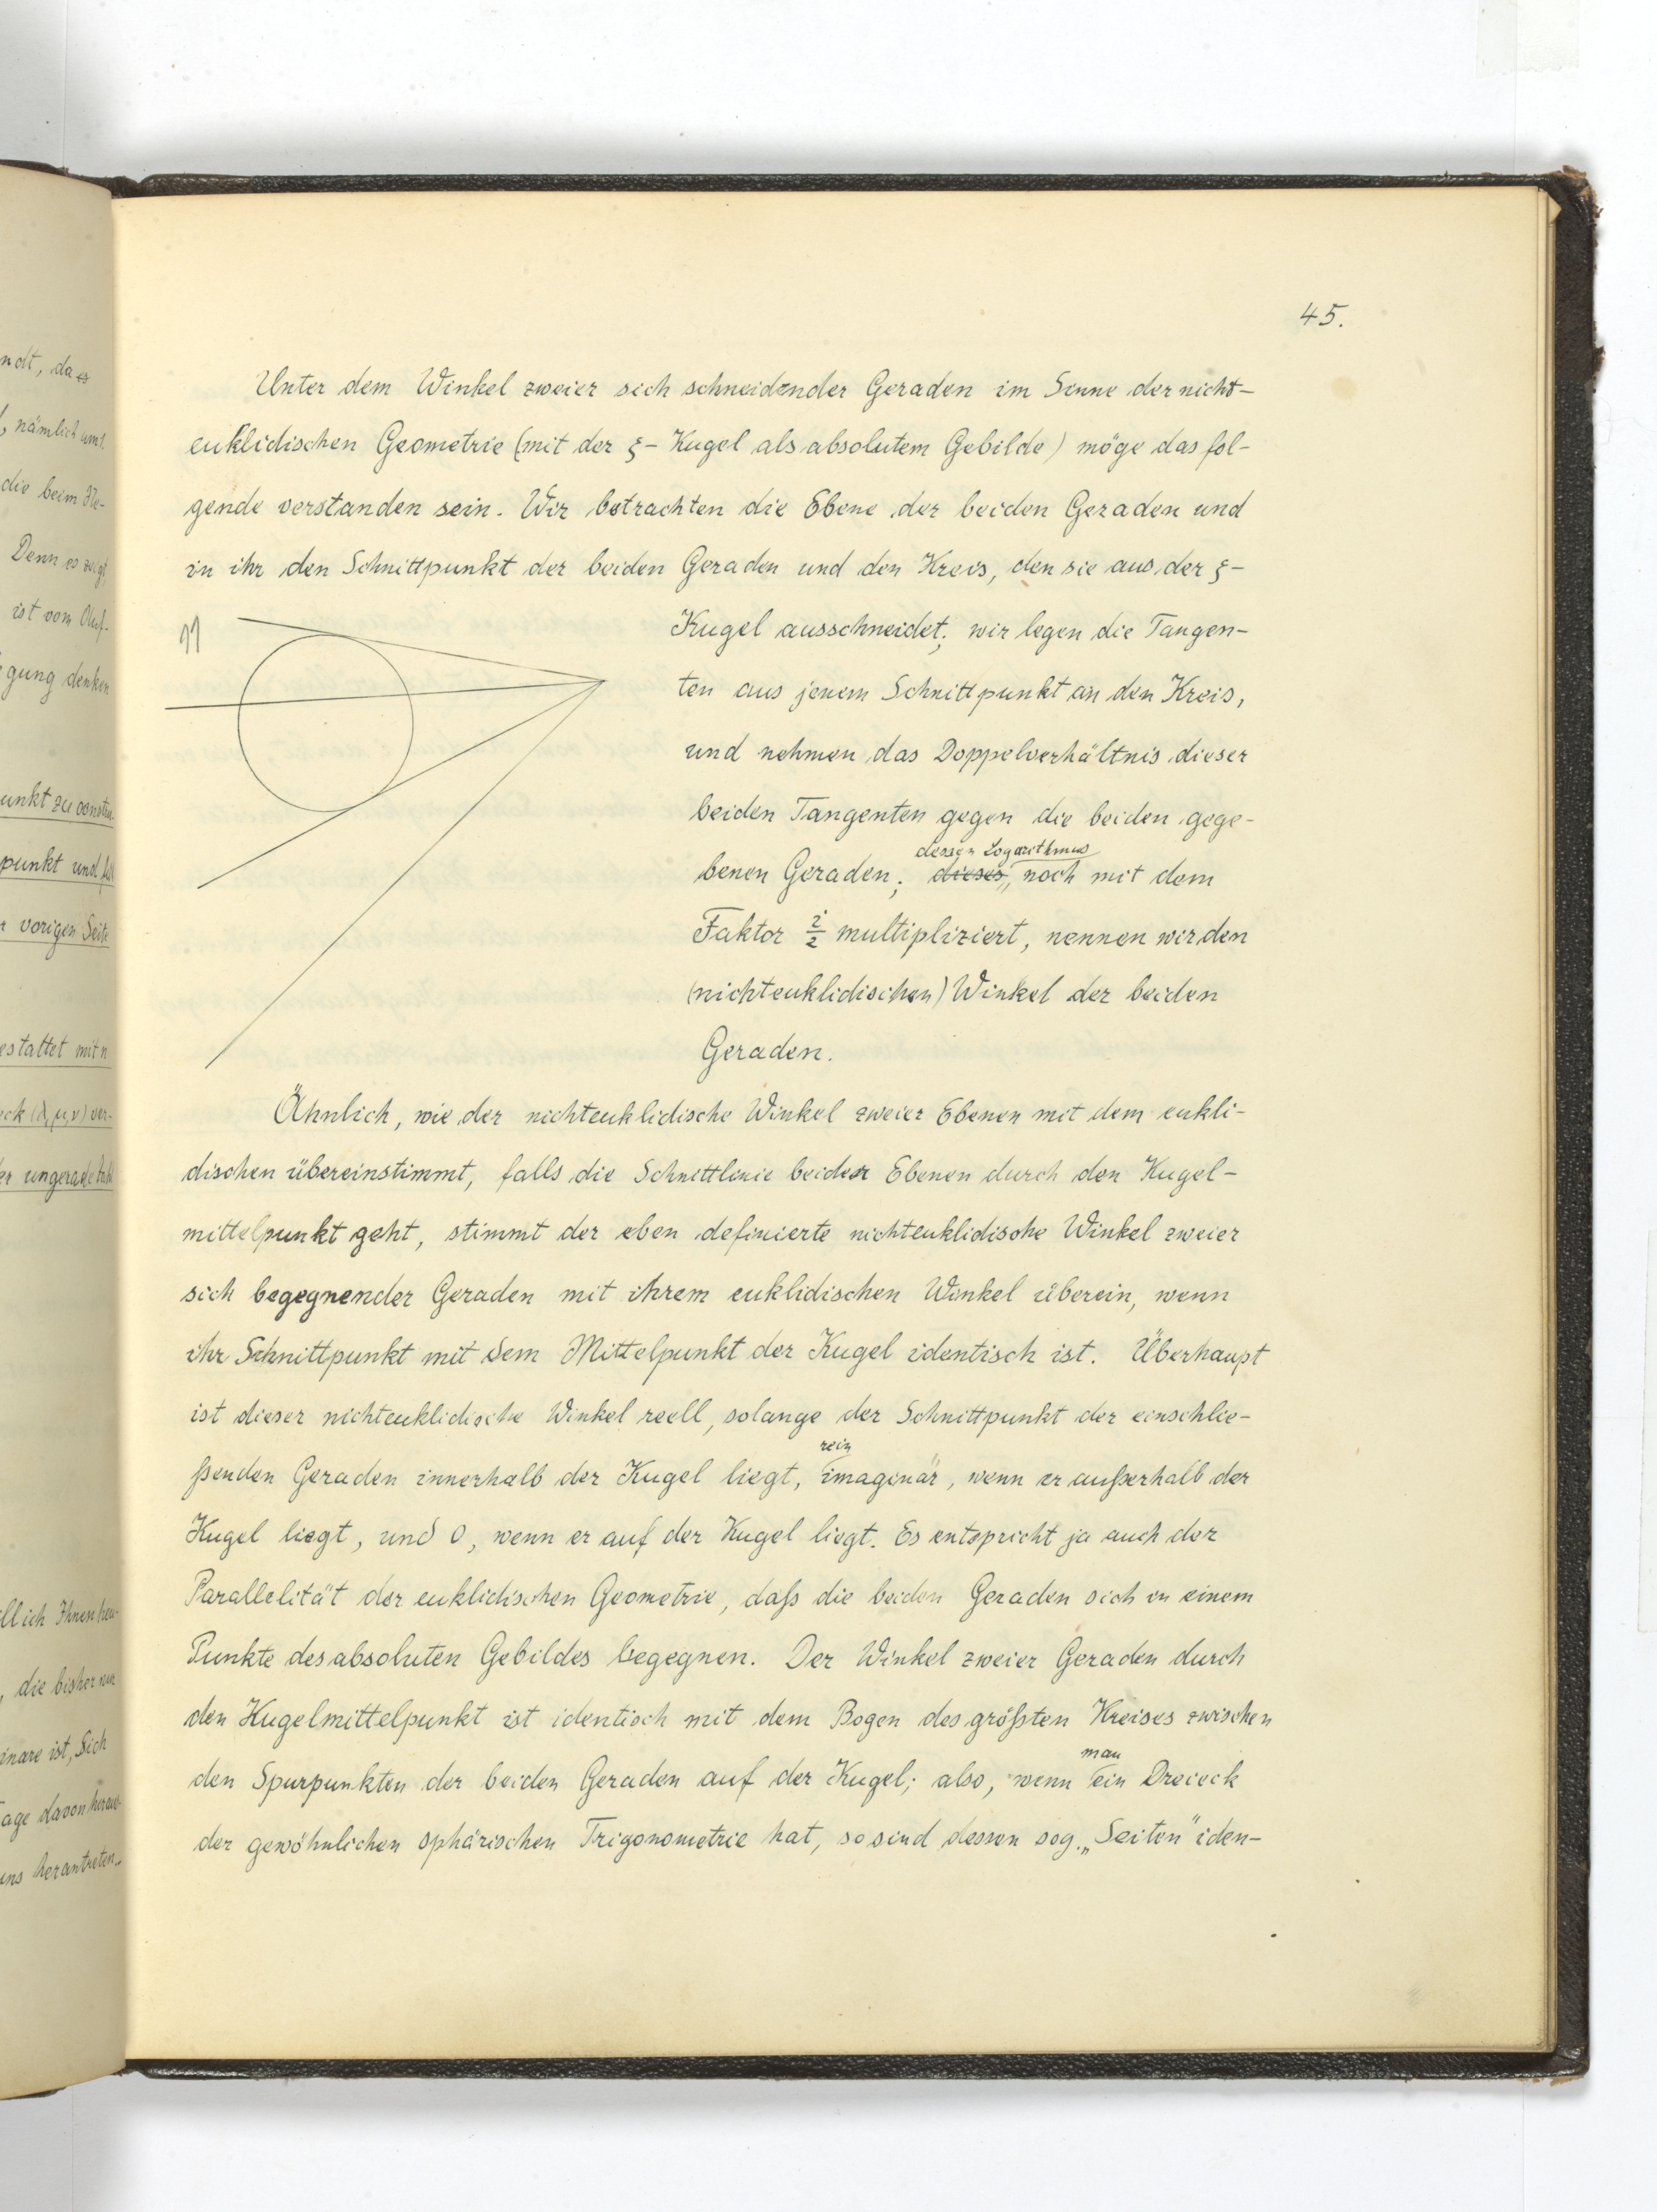 ndt, da es
, nämlich um
die beim
Denn es zeigt
ist vom Auf-
gung denken
unkt zu
punkt und
vorigen Seite
estattet mit n
eck (λ, μ, ν) ver-
er ungerade
ll ich Ihnen
, die bisher nur
inare ist, Sich
age davon
uns herantreten.
45.
Unter dem Winkel zweier sich schneidender Geraden im Sinne der nicht-
euklidischen Geometrie (mit der ξ- Kugel als absolutem Gebilde) möge das fol-
gende verstanden sein. Wir betrachten die Ebene der beiden Geraden und
in ihr den Schnittpunkt der beiden Geraden und den Kreis, den sie aus der ξ-
Kugel ausschneidet; wir legen die Tangen-
ten aus jenem Schnittpunkt an den Kreis,
und nehmen das Doppelverhältnis dieser
beiden Tangenten gegen die beiden gege-
dessen Logarithmus
benen Geraden; dieses, noch mit dem
Faktor i/2 multipliziert, nennen wir den
(nichteuklidischen) Winkel der beiden
Geraden.
Ähnlich, wie der nichteuklidische Winkel zweier Ebenen mit dem eukli-
dischen übereinstimmt, falls die Schnittlinie beider Ebenen durch den Kugel-
mittelpunkt geht, stimmt der eben definierte nichteuklidische Winkel zweier
sich begegnender Geraden mit ihrem euklidischen Winkel überein, wenn
ihr Schnittpunkt mit dem Mittelpunkt der Kugel identisch ist. Überhaupt
ist dieser nichteuklidische Winkel reell, solange der Schnittpunkt der einschlie-
rein
ßenden Geraden innerhalb der Kugel liegt, imaginär, wenn er außerhalb der
Kugel liegt, und 0, wenn er auf der Kugel liegt. Es entspricht ja auch der
Parallelität der euklidischen Geometrie, daß die beiden Geraden sich in einem
Punkte des absoluten Gebildes begegnen. Der Winkel zweier Geraden durch
den Kugelmittelpunkt ist identisch mit dem Bogen des größten Kreises zwischen
man
den Spurpunkten der beiden Geraden auf der Kugel; also, wenn ein Dreieck
der gewöhnlichen sphärischen Trigonometrie hat, so sind dessen sog. „Seiten" iden-